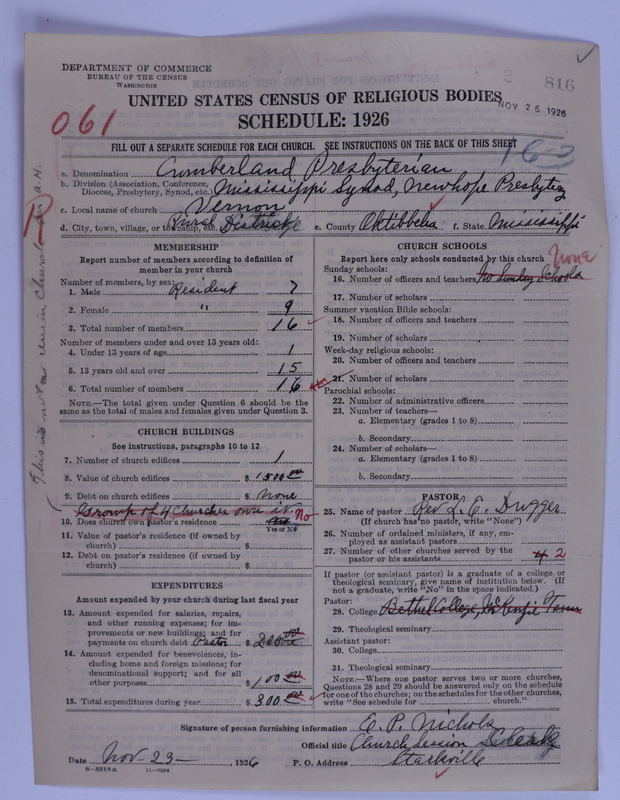 DEPARTMENT OF COMMERCE
BUREAU OF THE CENSUS
WASHINGTON
816
UNITED STATES CENSUS OF RELIGIOUS BODIES
NOV 26 1926
SCHEDULE: 1926
061
FILL OUT A SEPARATE SCHEDULE FOR EACH CHURCH. SEE INSTRUCTIONS ON THE BACK OF THIS SHEET
163
a. Denomination Cumberland Presbyterian
b. Division (Association, Conference, Diocese, Presbytery, Synod, etc. Mississippi Synod, Newhope Presbytery
c. Local name of church Vernon
d. City, town, village, or township, etc. Rural District e. County Oktibbeha f. State Mississippi
MEMBERSHIP
Report number of members according to definition of
member in your church
Number of members, by sex:
1. Male Resident 7
2. Female " 9
3. Total number of members 16
Number of members under and over 13 years old:
4. Under 13 years of age 1
5. 13 years old and over 15
6. Total number of members 16
NOTE.—The total given under Question 6 should be the
same as the total of males and females given under Question 3.
CHURCH BUILDINGS
See instructions, paragraphs 10 to 12
7. Number of church edifices 1
8. Value of church edifices $ 1500 00
9. Debt on church edifices $ None
Group of 4 Churches own it
10. Does church own pastor's residence No
Yes or No
11. Value of pastor's residence (if owned by
church) $
12. Debt on pastor's residence (if owned by
church) $
EXPENDITURES
Amount expended by your church during last fiscal year
13. Amount expended for salaries, repairs,
and other running expenses; for im-
provements or new buildings; and for
payments on church debt Pastor $ 200 00
14. Amount expended for benevolences, in-
cluding home and foreign missions; for
denominational support; and for all
other purposes $ 100 00
15. Total expenditures during year $ 300 00
CHURCH SCHOOLS
Report here only schools conducted by this church None
Sunday schools:
16. Number of officers and teachers No Sunday Schools
17. Number of scholars
Summer vacation Bible schools:
18. Number of officers and teachers
19. Number of scholars
Week-day religious schools:
20. Number of officers and teachers
21. Number of scholars
Parochial schools:
22. Number of administrative officers
23. Number of teachers—
a. Elementary (grades 1 to 8)
b. Secondary
24. Number of scholars—
a. Elementary (grades 1 to 8)
b. Secondary
PASTOR
25. Name of pastor Rev L. E. Dugger
(If church has no pastor, write "None")
26. Number of ordained ministers, if any, em-
ployed as assistant pastors
27. Number of other churches served by the
pastor or his assistants 4 2
If pastor (or assistant pastor) is a graduate of a college or
theological seminary, give name of institution below. (If
not a graduate, write "No" in the space indicated.)
Pastor:
28. College Bethel College, McKenzie Tenn
29. Theological seminary
Assistant pastor:
30. College
31. Theological seminary
NOTE.—Where one pastor serves two or more churches,
Questions 28 and 29 should be answered only on the schedule
for one of the churches; on the schedules for the other churches,
write "See schedule for church."
Signature of person furnishing information E. P. Nichols
Official title Church Session Clerk
Date Nov-23-, 1926 P. O. Address Starkville
8—5518a 11—9054